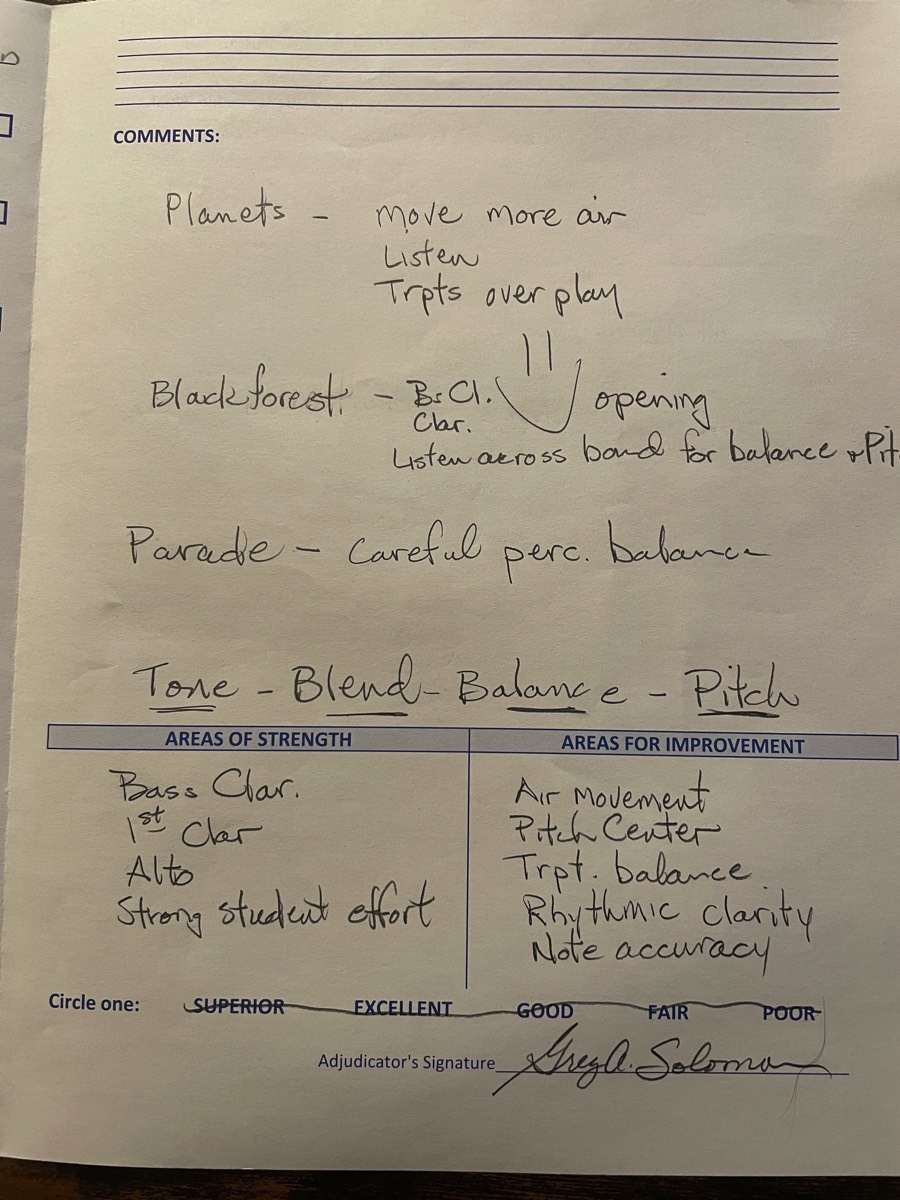 COMMENTS:
Planets - Move more air
Listen
Trpts over play
Blackforest. - Bs Cl. opening
Clar.
Listen across band for balance + Pit
Parade - Careful perc. balance
Tone - Blend - Balance - Pitch
AREAS OF STRENGTH
Bass Clar.
1st Clar
Alto
Strong student effort
AREAS FOR IMPROVEMENT
Air Movement
Pitch Center
Trpt. balance
Rhythmic clarity
Note accuracy
Circle one: SUPERIOR EXCELLENT GOOD FAIR POOR
Adjudicator's Signature Greg A. Solomon